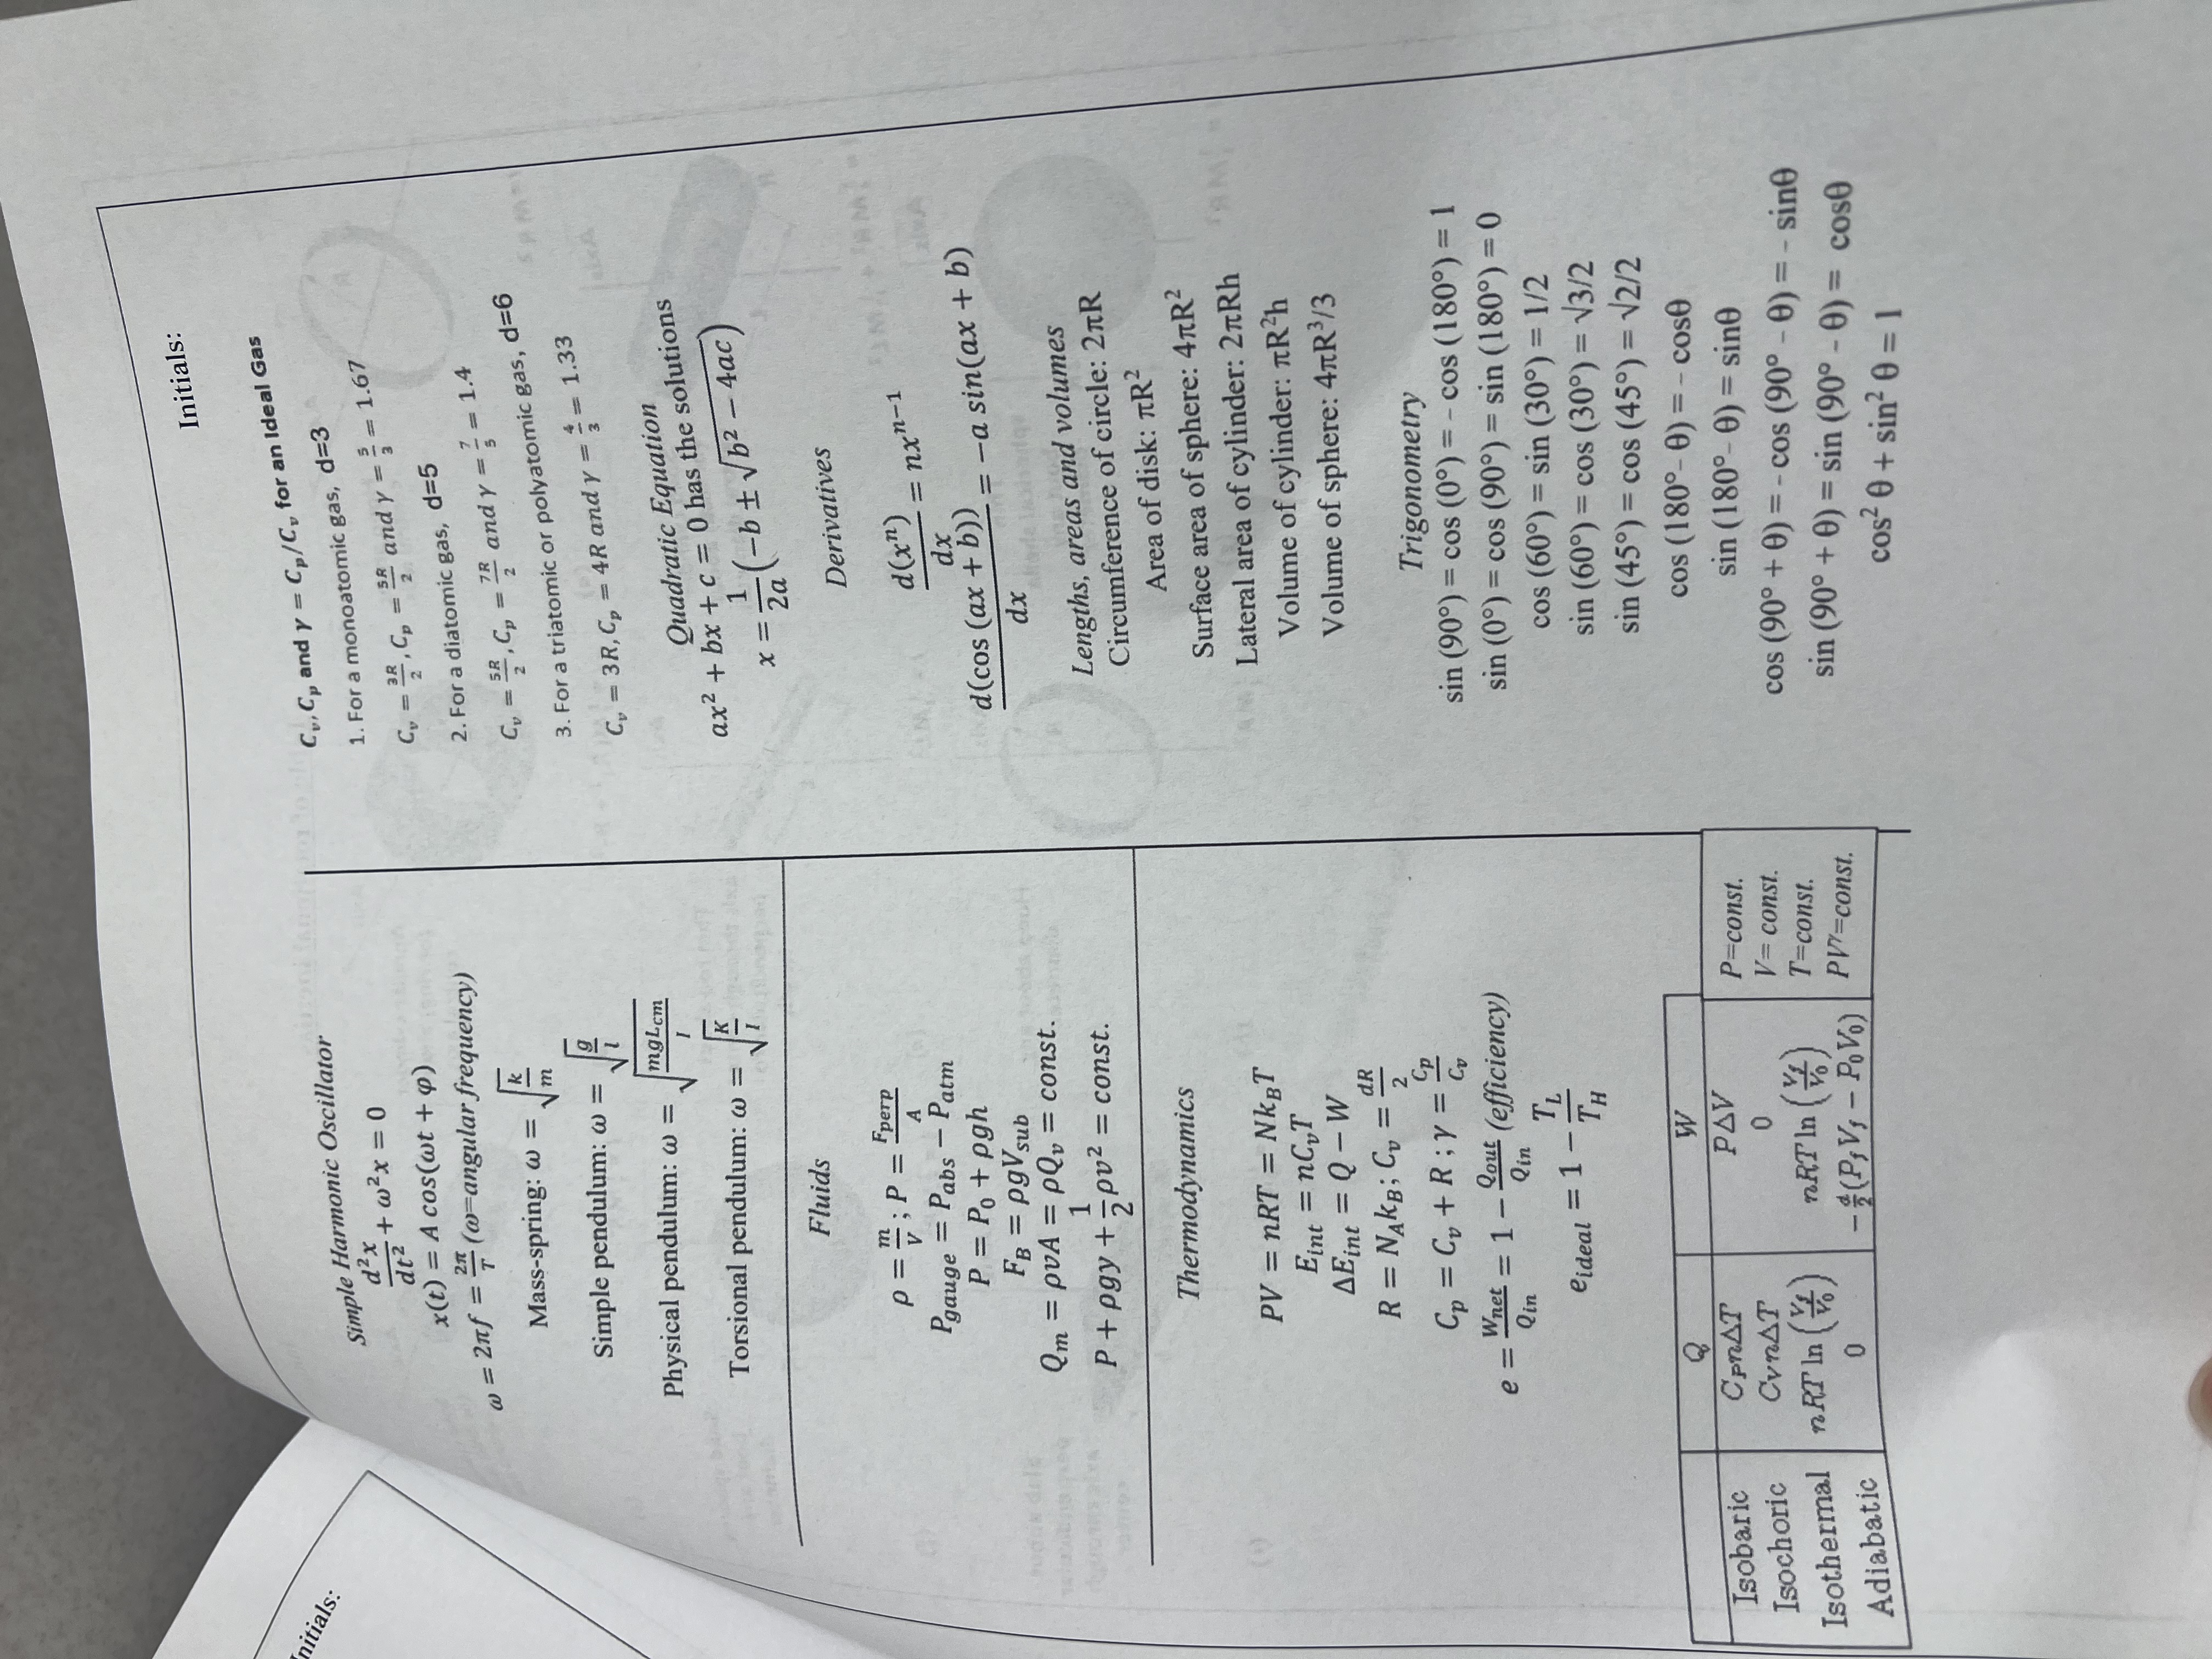 Initials:
Simple Harmonic Oscillator
d²x/dt² + ω²x = 0
x(t) = A cos(ωt + φ)
ω = 2πf = 2π/T (ω=angular frequency)
Mass-spring: ω = √(k/m)
Simple pendulum: ω = √(g/l)
Physical pendulum: ω = √(mgL_cm/I)
Torsional pendulum: ω = √(K/I)
Fluids
ρ = m/V ; P = F_perp/A
P_gauge = P_abs − P_atm
P = P₀ + ρgh
F_B = ρgV_sub
Q_m = ρvA = ρQ_v = const.
P + ρgy + 1/2 ρv² = const.
Thermodynamics
PV = nRT = Nk_BT
E_int = nC_vT
ΔE_int = Q − W
R = N_Ak_B; C_v = dR/2
C_p = C_v + R ; γ = C_p/C_v
e = W_net/Q_in = 1 − Q_out/Q_in (efficiency)
e_ideal = 1 − T_L/T_H
Q W
Isobaric C_PnΔT PΔV P=const.
Isochoric C_VnΔT 0 V= const.
Isothermal nRT ln (V_f/V_0) nRT ln (V_f/V_0) T=const.
Adiabatic 0 −d/2(P_fV_f − P_0V_0) PV^γ=const.
C_v, C_p and γ = C_p/C_v for an Ideal Gas
1. For a monoatomic gas, d=3
C_v = 3R/2, C_p = 5R/2 and γ = 5/3 = 1.67
2. For a diatomic gas, d=5
C_v = 5R/2, C_p = 7R/2 and γ = 7/5 = 1.4
3. For a triatomic or polyatomic gas, d=6
C_v = 3R, C_p = 4R and γ = 4/3 = 1.33
Quadratic Equation
ax² + bx + c = 0 has the solutions
x = 1/2a (−b ± √(b² − 4ac))
Derivatives
d(xⁿ)/dx = nxⁿ⁻¹
d(cos (ax + b))/dx = −a sin(ax + b)
Lengths, areas and volumes
Circumference of circle: 2πR
Area of disk: πR²
Surface area of sphere: 4πR²
Lateral area of cylinder: 2πRh
Volume of cylinder: πR²h
Volume of sphere: 4πR³/3
Trigonometry
sin (90°) = cos (0°) = - cos (180°) = 1
sin (0°) = cos (90°) = sin (180°) = 0
cos (60°) = sin (30°) = 1/2
sin (60°) = cos (30°) = √3/2
sin (45°) = cos (45°) = √2/2
cos (180°- θ) = - cosθ
sin (180°- θ) = sinθ
cos (90° + θ) = - cos (90° - θ) = - sinθ
sin (90° + θ) = sin (90° - θ) = cosθ
cos² θ + sin² θ = 1